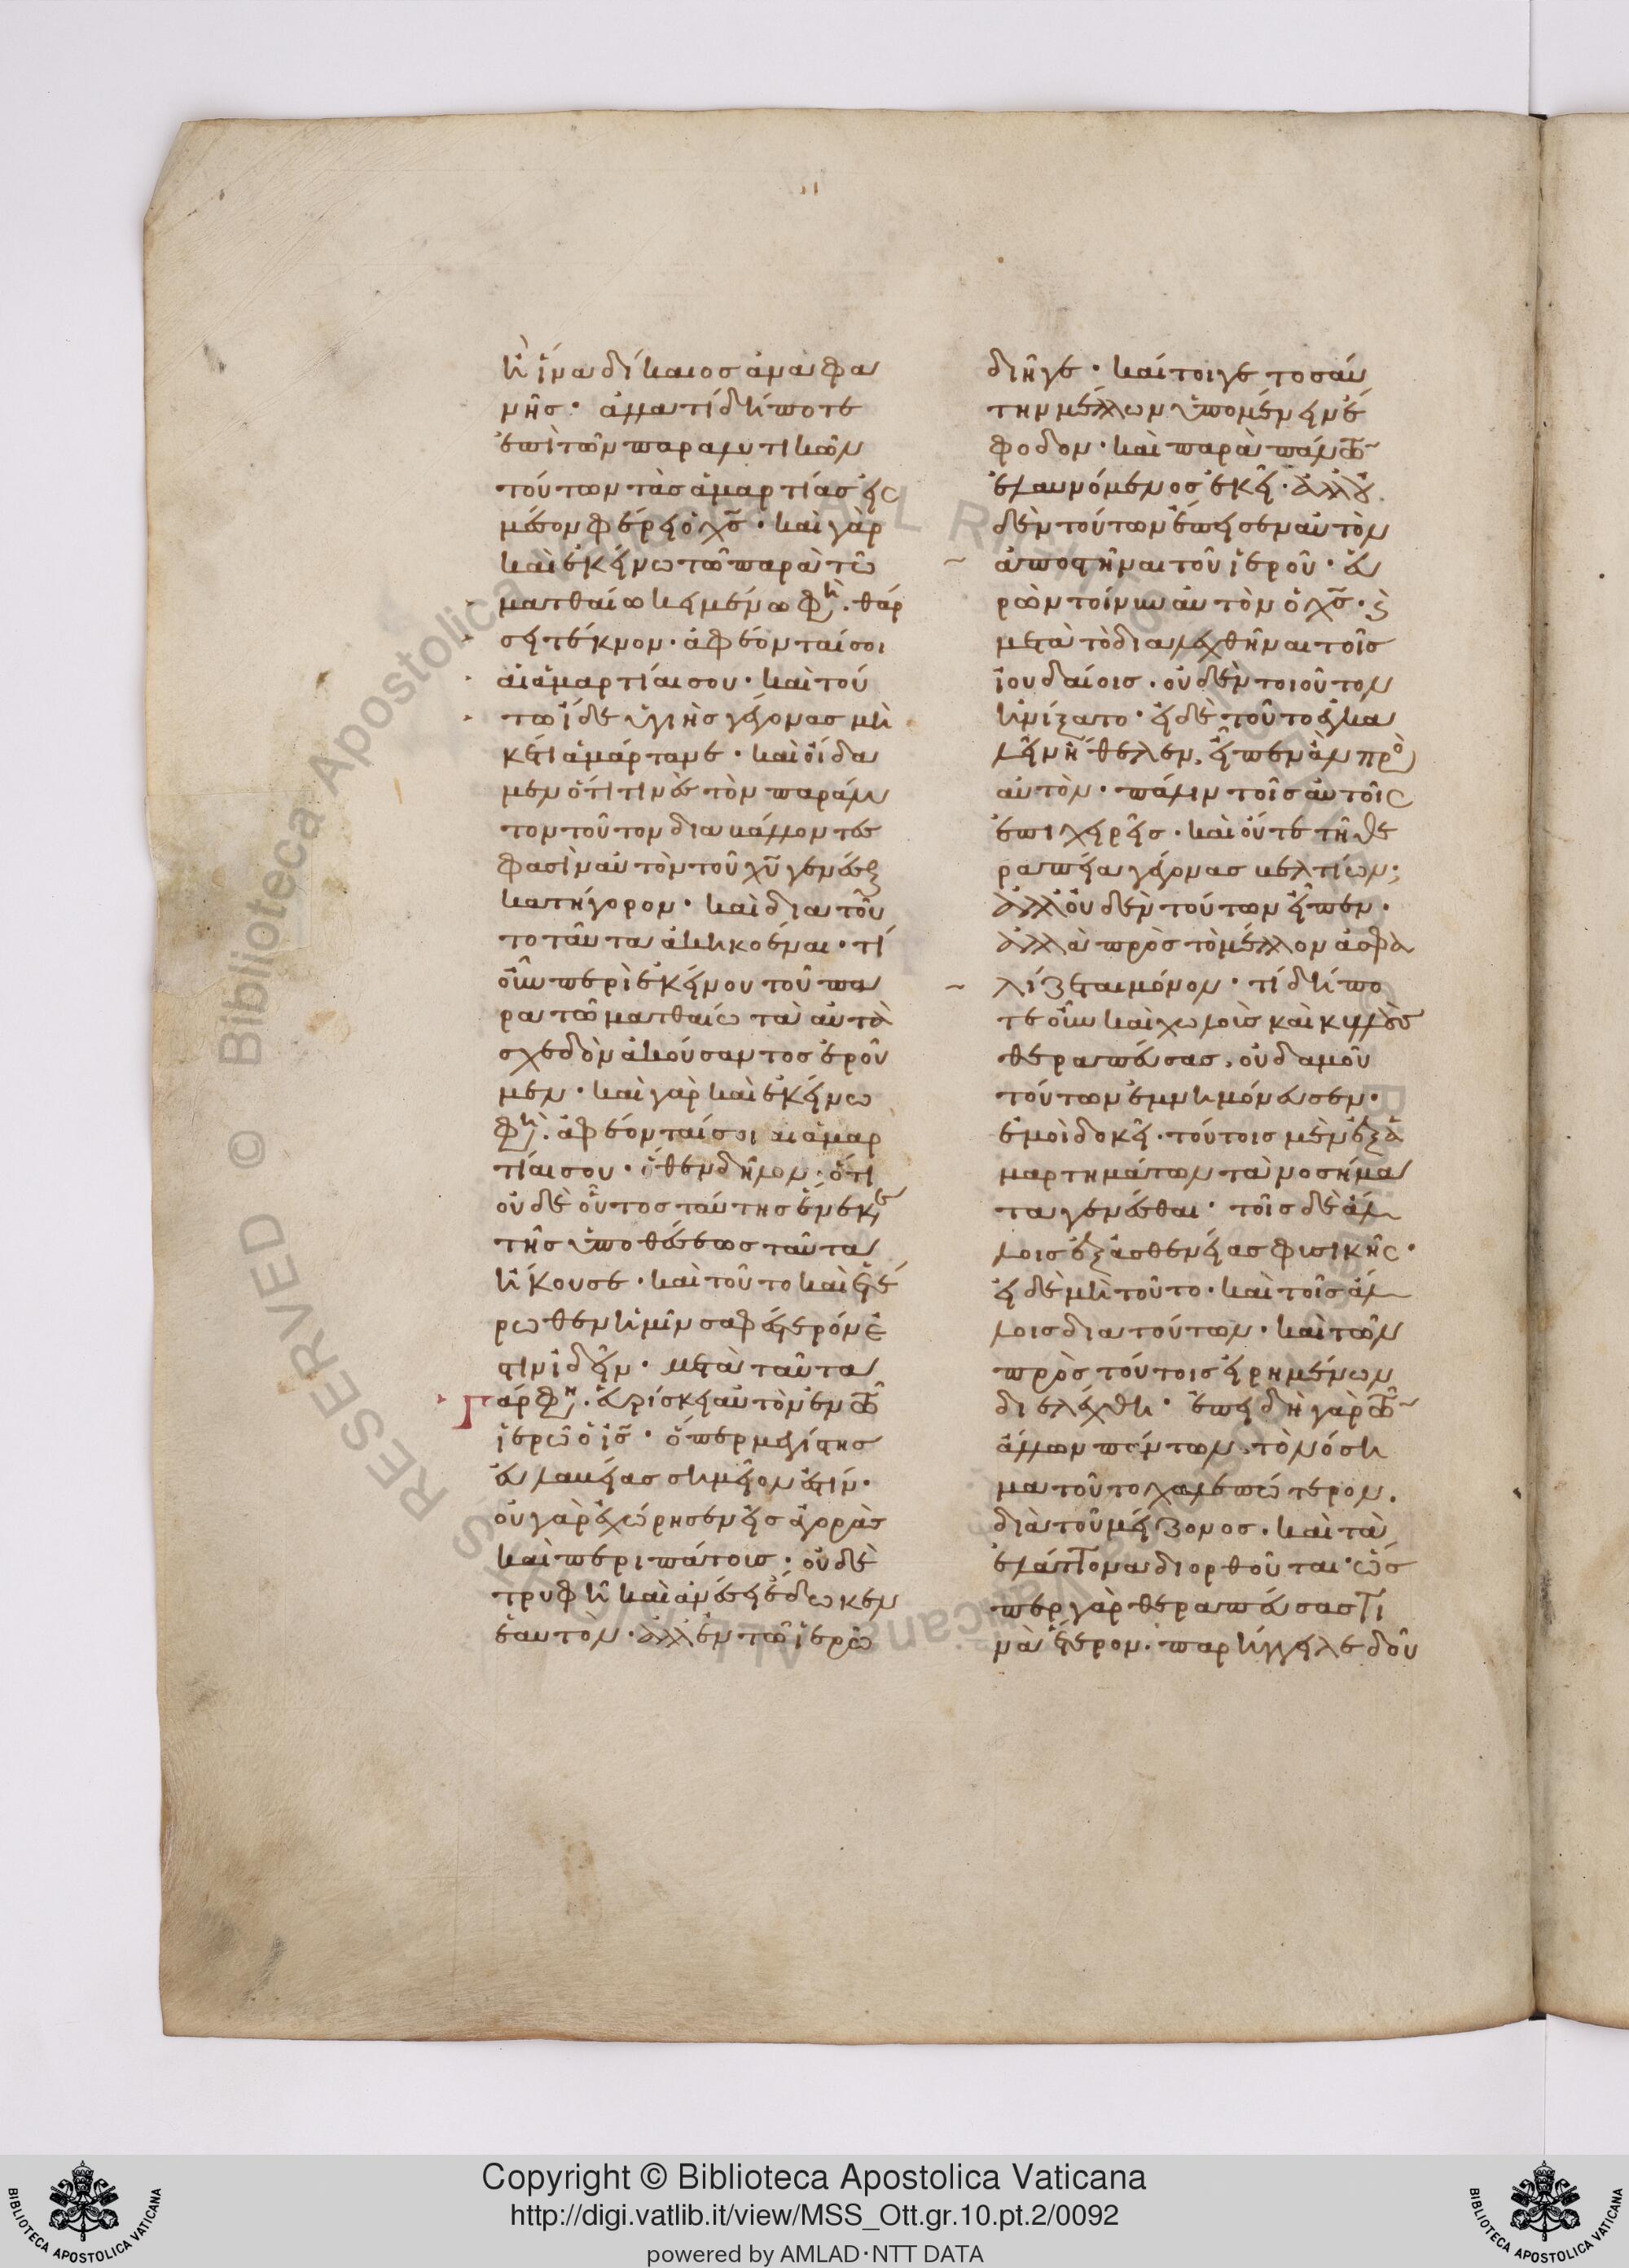 ἢ ἵνα δίκαιος ἀναφα
νῇς· ἀλλα τί δήποτε
ἐπὶ τῶν παραλυτικῶν
τούτων τὰς ἁμαρτίας εἰς
μέσον φέρει ὁ χ̅ς̅· καὶ γὰρ
καὶ ἐκείνω τῶ παρὰ τῶ
ματθαίω κειμένω φη. θάρ
σει τέκνον· ἀφέονταί σοι
αἱ ἁμαρτίαι σου· καὶ τού
τω ἴδε ὑγιὴς γέγονας μὴ
κέτι ἁμάρτανε· καὶ οἶδα
μεν ὅτι τινὲς τὸν παράλυ
τον τοῦτον διαβάλλοντες
φασὶν αὐτὸν τοῦ χ̅υ̅ γενέσθαι
κατήγορον· καὶ δια τοῦ
το ταῦτα ἀκηκοέναι· τί
οὖν περὶ ἐκείνου τοῦ πα
ρα τῶ ματθαίω τὰ αὐτὰ
σχεδὸν ἀκούσαντος ἐροῦ
μεν· καὶ γὰρ καὶ ἐκείνω
φη. ἀφέονταί σοι αι ἁμαρ
τίαι σου· ὅθεν δῆλον· ὅτι
οὐδὲ οὗτος ταύτης ἕνεκεν
τῆς ὑποθέσεως ταῦτα
ἤκουσε· καὶ τοῦτο καὶ ἑτέ
ρωθεν ἡμῖν σαφέστερόν ἐ
στιν ἰδεῖν· μετὰ ταῦτα
γάρ φη. εὑρίσκει αὐτὸν ἐν τῶ
ἱερῶ ὁ ι̅ς̅· ὅπερ μεγίστης
εὐλαβείας σημεῖον ἐστίν·
οὐ γὰρ ἐχώρησεν εἰς ἀγορὰς
καὶ περιπάτους· οὐδὲ
τρυφῆ καὶ ἀνέσει ἔδωκεν
ἑαυτὸν· ἀλλ ἐν τῶ ἱερῶ
διῆγε· καίτοιγε τοσαύ
την μέλλων ὑπομένειν ἔ
φοδον· καὶ παρὰ πάντων
ἐλαυνόμενος ἐκεῖ· ἀλλ οὐ
δὲν τούτων ἔπεισεν αὐτὸν
ἀποστῆναι τοῦ ἱεροῦ· εὑ
ρὼν τοίνυν αὐτὸν ὁ χ̅ς̅· καὶ
μετὰ τὸ διαλεχθῆναι τοῖς
ἰουδαίοις. οὐδὲν τοιοῦτον
ἠνίξατο· εἰ δὲ τοῦτο ἐγκα
λεῖν ἤθελεν, εἶπεν ἂν πρὸς
αὐτὸν· πάλιν τοῖς αὐτοῖς
ἐπιχειρεῖς· καὶ οὔτε τῆ θε
ραπεία γέγονας βελτίων;
ἀλλ οὐδὲν τούτων εἶπεν·
ἀλλὰ πρὸς τὸ μέλλον ἀσφα
λίζεται μόνον· τί δήπο
τε οὖν καὶ χωλοὺς καὶ κυλλοὺς
θεραπεύσας, οὐδαμοῦ
τούτων ἐμνημόνευσεν·
ἐμοὶ δοκεῖ· τούτοις μὲν ἐξ ἁ
μαρτημάτων τὰ νοσήμα
τα γενέσθαι· τοῖς δὲ ἄλ
λοις ἐξ ἀσθενείας φισικῆς·
εἰ δὲ μὴ τοῦτο· καὶ τοῖς ἄλ
λοις δια τούτων· καὶ τῶν
πρὸς τούτοις εἰρημένων
διελέχθη· ἐπειδὴ γὰρ τῶν
ἄλλων πάντων, τὸ νόση
μα τοῦτο χαλεπώτερον.
διὰ τοῦ μείζονος. καὶ τὰ
ἐλάττονα διορθοῦται· ὥσ
περ γὰρ θεραπεύσας τι
νὰ ἕτερον. παρήγγειλε δοῦ
Copyright © Biblioteca Apostolica Vaticana
http://digi.vatlib.it/view/MSS_Ott.gr.10.pt.2/0092
powered by AMLAD·NTT DATA